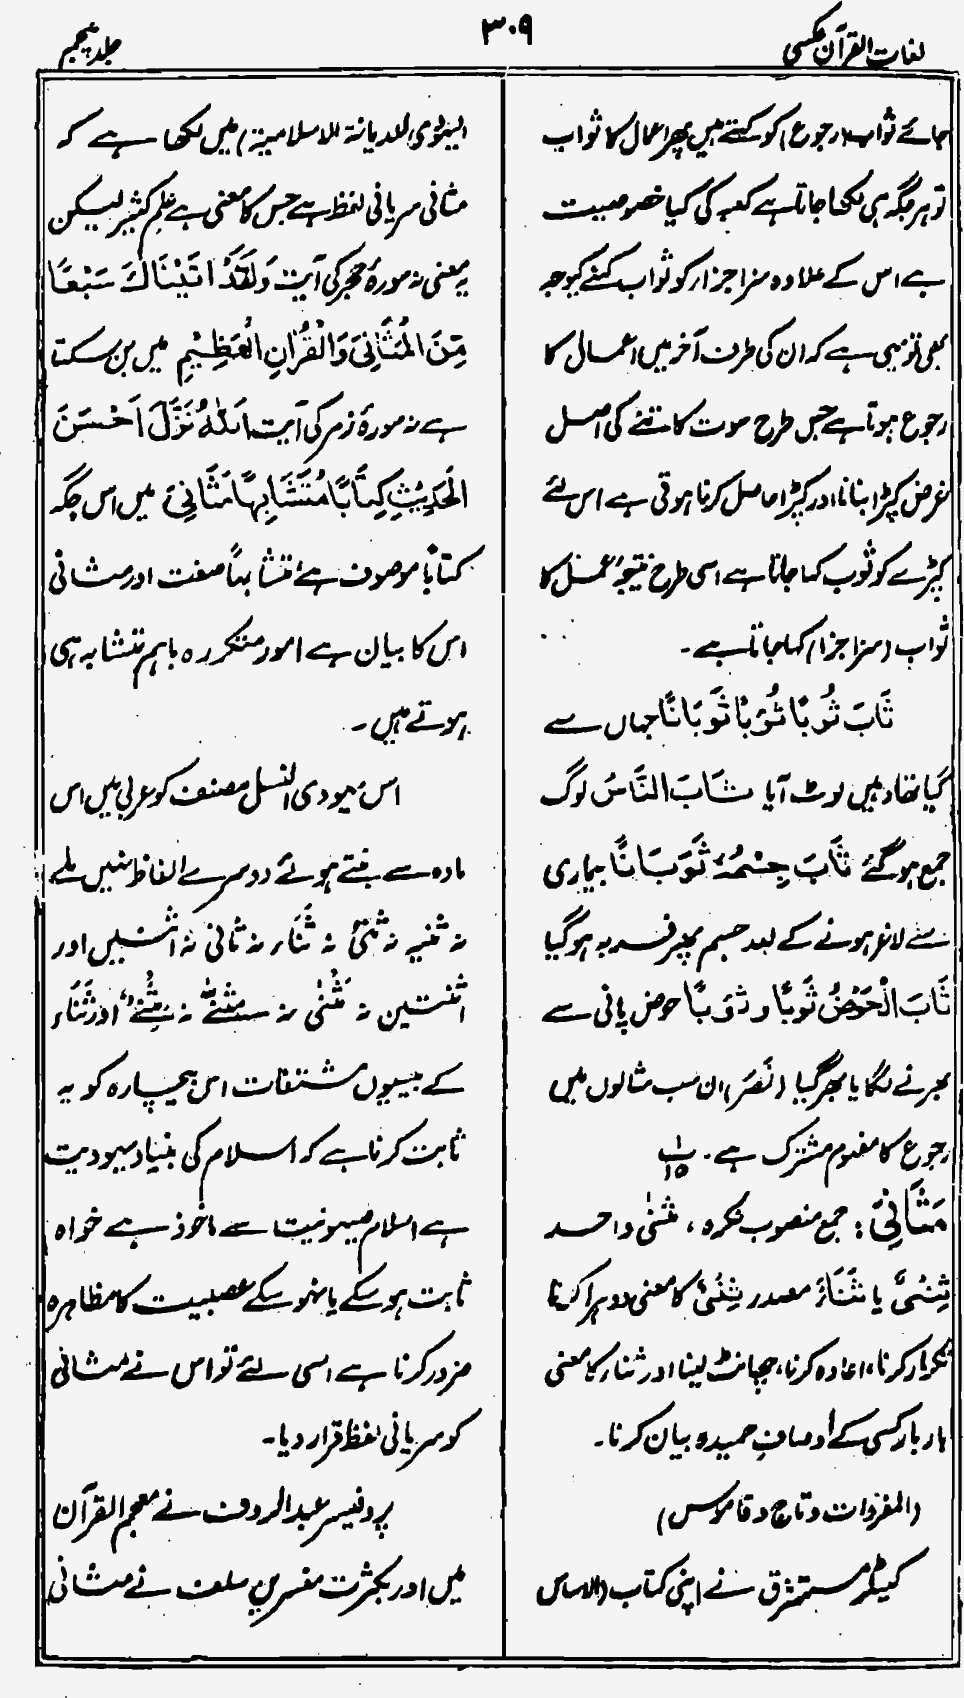 لغات القرآن عکسی
۳۰۹
جلد پنجم
جائے ثواب (رجوع) کو کہتے ہیں پھر اعمال کا ثواب
تو ہر جگہ ہی لکھا جاتا ہے کعبہ کی کیا خصوصیت
ہے اس کے علاوہ سزا جزار کو ثواب کہنے کیوجہ
بھی تو یہی ہے کہ ان کی طرف آخر میں اعمال کا
رجوع ہوتا ہے جس طرح سوت کاتنے کی اصل
غرض کپڑا بنانا اور کپڑا حاصل کرنا ہوتی ہے اس لئے
کپڑے کو ثوب کہا جاتا ہے اسی طرح نتیجۂ عمل کا
ثواب (سزا جزا) کہا جاتا ہے۔
ثَابَ ثُوبًا ثُؤَبًا ثَوَبَانًا جہاں سے
گیا تھا وہیں لوٹ آیا ثَابَ النَّاسُ لوگ
جمع ہو گئے ثَابَ جِسْمُہٗ ثَوَبَانًا بیماری
سے لاغر ہونے کے بعد جسم پھر فربہ ہو گیا
ثَابَ الْحَوْضُ ثَوبًا وثؤبًا حوض پانی سے
بھرنے لگا یا بھر گیا (نَصَرَ) ان سب مثالوں میں
رجوع کا مفہوم مشترک ہے۔ ۱/۱۵
مَثَانِیَ: جمع منصوب نکرہ، مَثنٰی واحد
ثِنْیٌ یا ثَنَاءٌ مصدر ثِنْیٌ کا معنی دوہرا کرنا
تکرار کرنا، اعادہ کرنا، چھانٹ لینا اور ثنار کا معنی
بار بار کسی کے اوصافِ حمیدہ بیان کرنا۔
(المفردات و تاج و قاموس)
کیٹلر مستشرق نے اپنی کتاب (الاساس
الیہودی للدیانۃ الاسلامیۃ) میں لکھا ہے کہ
مثانی سریانی لفظ ہے جس کا معنی ہے علم کثیر لیکن
یہ معنی نہ سورۂ حجر کی آیت وَلَقَدْ اٰتَیْنَاكَ سَبْعًا
مِّنَ الْمَثَانِیَ وَالْقُرْاٰنِ الْعَظِیْمِ میں بن سکتا
ہے نہ سورۂ زمر کی آیت اَللّٰهُ نَزَّلَ اَحْسَنَ
الْحَدِیْثِ کِتَابًا مُّتَشَابِہًا مَّثَانِیَ میں اس جگہ
کتاباً موصوف ہے متشابہاً صفت اور مثانی
اس کا بیان ہے امور متکررہ باہم متشابہ ہی
ہوتے ہیں۔
اس یہودی النسل مصنف کو عربی میں اس
مادہ سے بنتے ہوئے دوسرے الفاظ نہیں ملے
نہ تثنیہ نہ ثنیٌ نہ ثَنَاء نہ ثانی نہ اثنین اور
اثنتین نہ مَثْنٰی نہ نہ اور ثَنَاء
کے بیسیوں مشتقات اس بیچارہ کو یہ
ثابت کرنا ہے کہ اسلام کی بنیاد یہودیت
ہے اسلام صیہونیت سے ماخوذ ہے خواہ
ثابت ہو سکے یا نہو سکے عصبیت کا مظاہرہ
ضرور کرنا ہے اسی لئے تو اس نے مثانی
کو سریانی لفظ قرار دیا۔
پروفیسر عبدالرؤف نے معجم القرآن
میں اور بکثرت مفسرین سلف نے مثانی